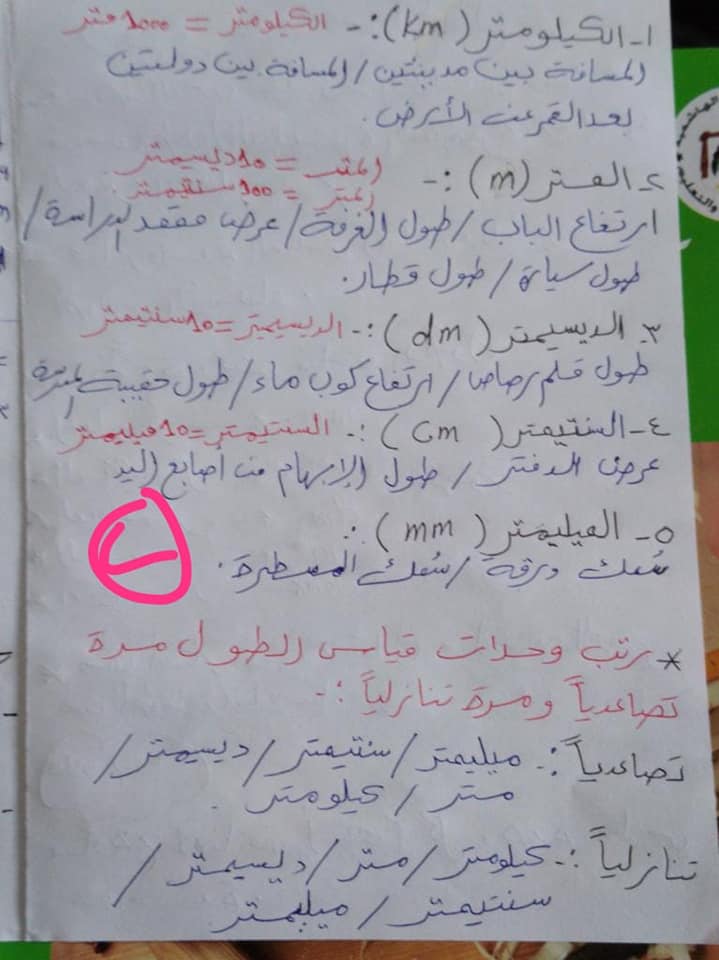 ١- الكيلومتر (km) :- الكيلومتر = ١٠٠٠ متر
المسافة بين مدينتين / المسافة بين دولتين
بعد القمر عن الأرض.
المتر = ١٠ ديسيمتر
٢- المتر (m) :- المتر = ١٠٠ سنتيمتر
ارتفاع الباب / طول الغرفة / عرض مقعد الدراسة /
طول سيارة / طول قطار.
٣- الديسيمتر (dm) :- الديسيمتر = ١٠ سنتيمتر
طول قلم رصاص / ارتفاع كوب ماء / طول حقيبة المدرسة
٤- السنتيمتر (Cm) :- السنتيمتر = ١٠ ميليمتر
عرض الدفتر / طول الإبهام من أصابع اليد
٥- الميليمتر (mm) :-
سُمك ورقة / سُمك المسطرة.
* رتب وحدات قياس الطول مرة
تصاعدياً ومرة تنازلياً :-
تصاعدياً :- ميليمتر / سنتيمتر / ديسيمتر /
متر / كيلومتر.
تنازلياً :- كيلومتر / متر / ديسيمتر /
سنتيمتر / ميليمتر